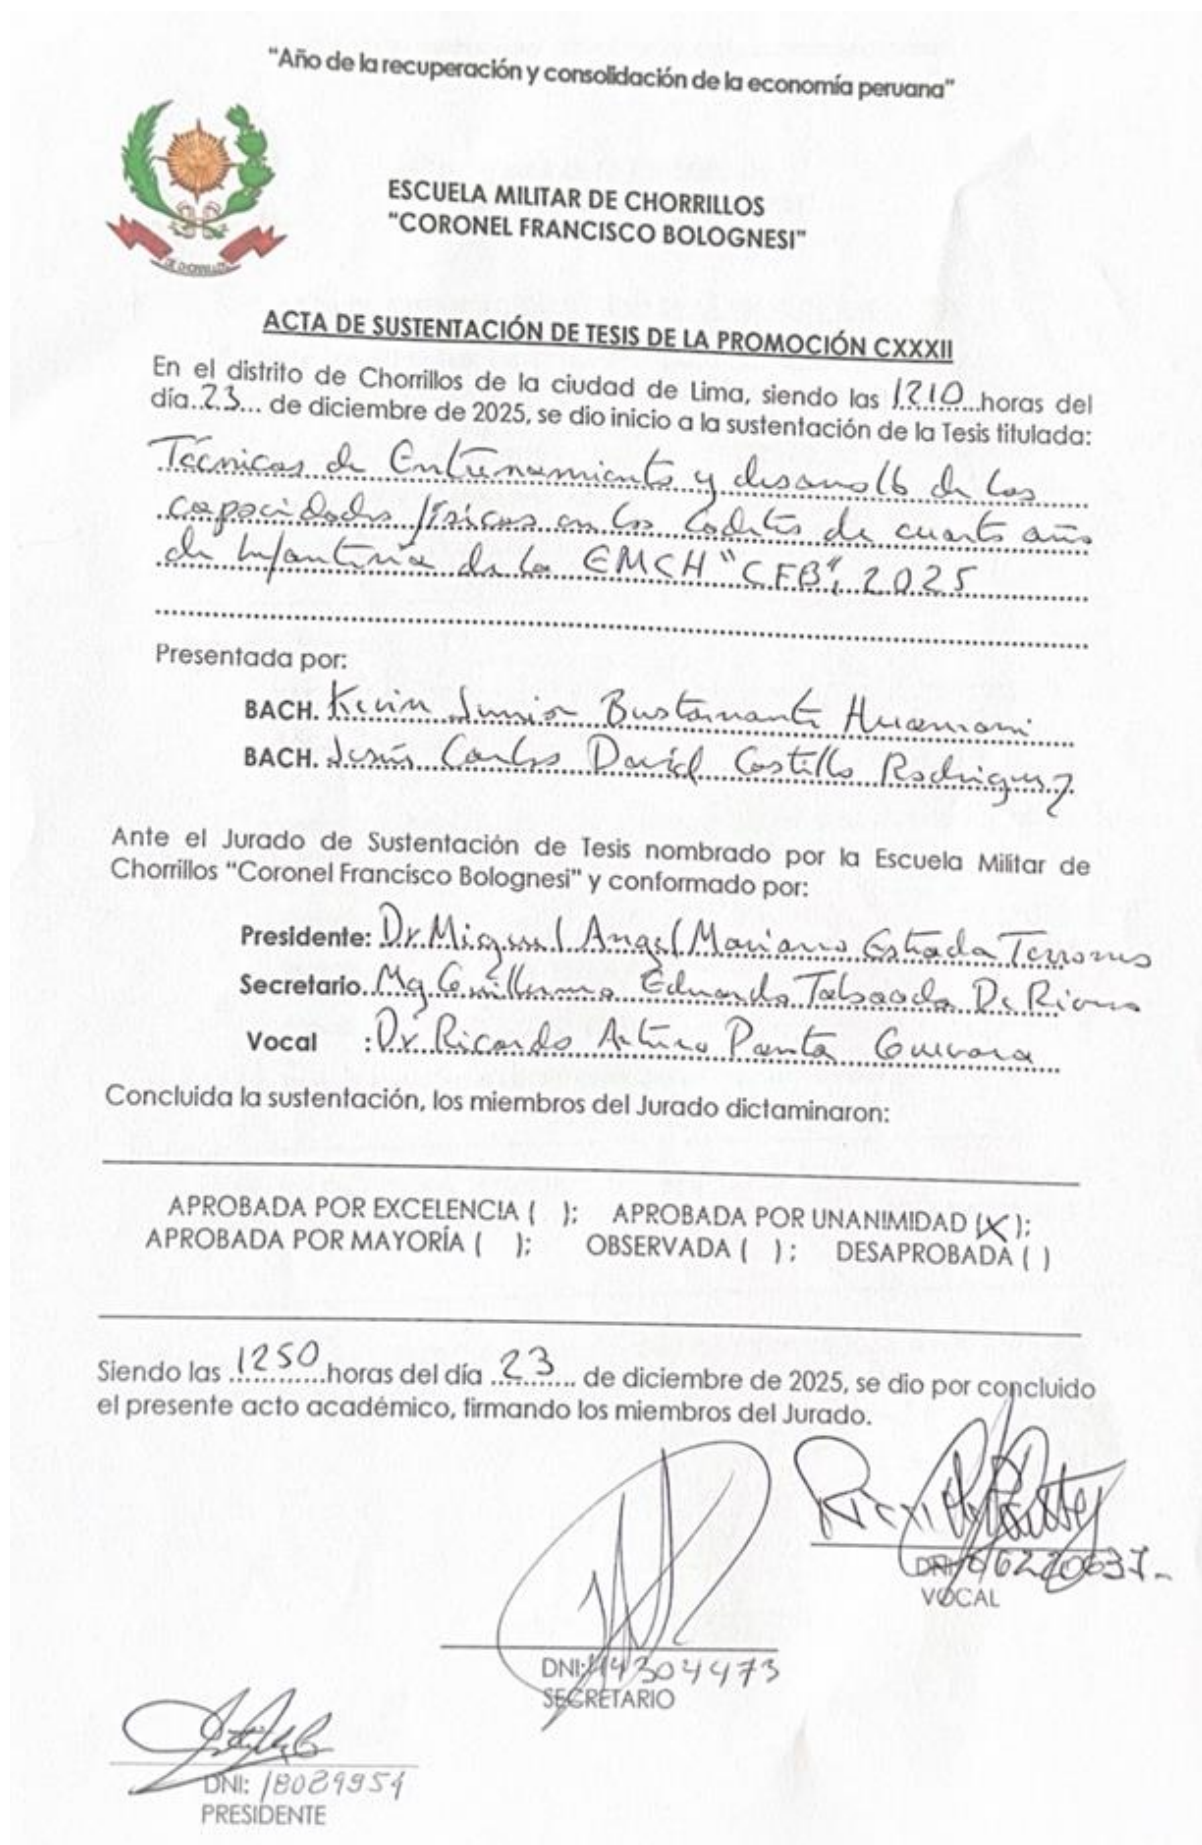 “Año de la recuperación y consolidación de la economía peruana”
ESCUELA MILITAR DE CHORRILLOS
“CORONEL FRANCISCO BOLOGNESI”
DE CHORRILLOS
ACTA DE SUSTENTACIÓN DE TESIS DE LA PROMOCIÓN CXXXII
En el distrito de Chorrillos de la ciudad de Lima, siendo las 1210 horas del
día 23 de diciembre de 2025, se dio inicio a la sustentación de la Tesis titulada:
Técnicas de Entrenamiento y desarrollo de las
capacidades físicas en los Cadetes de cuarto año
de Infantería de la EMCH "CFB", 2025
Presentada por:
BACH. Kevin Junior Bustamante Huamani
BACH. Jesús Carlos David Castillo Rodriguez
Ante el Jurado de Sustentación de Tesis nombrado por la Escuela Militar de
Chorrillos “Coronel Francisco Bolognesi” y conformado por:
Presidente: Dr. Miguel Angel Mariano Estrada Terrones
Secretario. Mg Guillermo Eduardo Taboada De
Vocal : Dr Ricardo Arturo Panta Guevara
Concluida la sustentación, los miembros del Jurado dictaminaron:
APROBADA POR EXCELENCIA ( ); APROBADA POR UNANIMIDAD (X);
APROBADA POR MAYORÍA ( ); OBSERVADA ( ); DESAPROBADA ( )
Siendo las 1250 horas del día 23 de diciembre de 2025, se dio por concluido
el presente acto académico, firmando los miembros del Jurado.
DNI:
VOCAL
DNI: 44304473
SECRETARIO
DNI: 18029954
PRESIDENTE